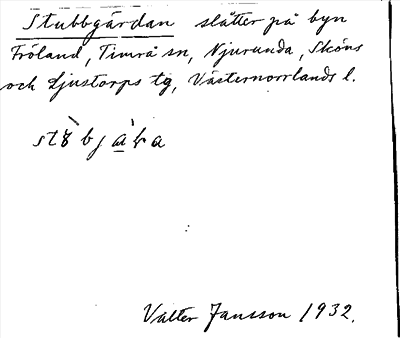 Stubbgårdan slåtter på byn
Fröland, Timrå sn, Njurunda, Sköns
och Ljustorps tg, Västernorrlands l.
Valter Jansson 1932.